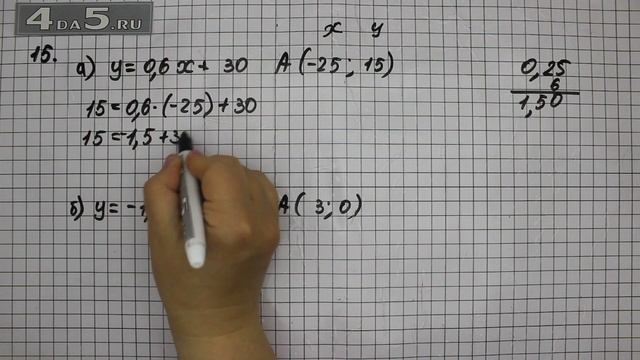 4DA5.RU
x y
15.
а) y = 0,6 x + 30 A (-25 ; 15)
15 = 0,6 · (-25) + 30
15 = -1,5 + 3
б) y = -1, A ( 3 ; 0)
0,25
6
1,50